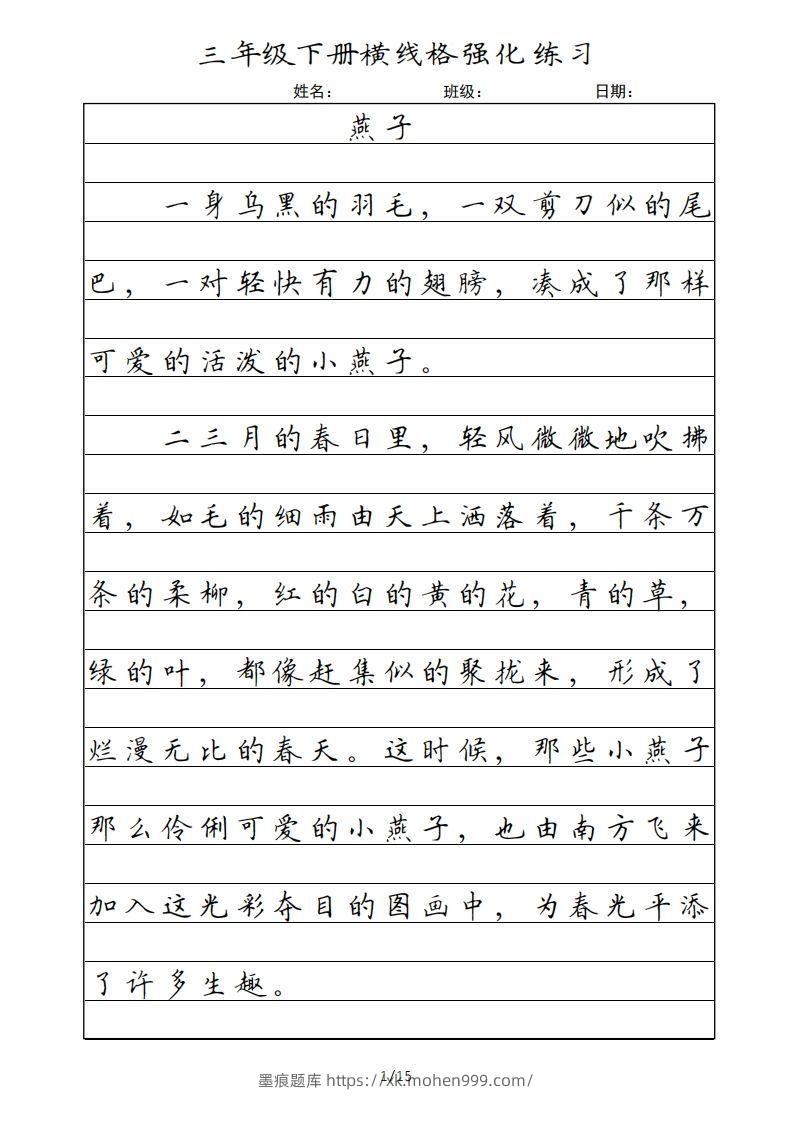 三年级下册横线格强化练习
姓名： 班级： 日期：
燕子
一身乌黑的羽毛，一双剪刀似的尾
巴，一对轻快有力的翅膀，凑成了那样
可爱的活泼的小燕子。
二三月的春日里，轻风微微地吹拂
着，如毛的细雨由天上洒落着，千条万
条的柔柳，红的白的黄的花，青的草，
绿的叶，都像赶集似的聚拢来，形成了
烂漫无比的春天。这时候，那些小燕子
那么伶俐可爱的小燕子，也由南方飞来
加入这光彩夺目的图画中，为春光平添
了许多生趣。
1/15
墨痕题库 https://xk.mohen999.com/